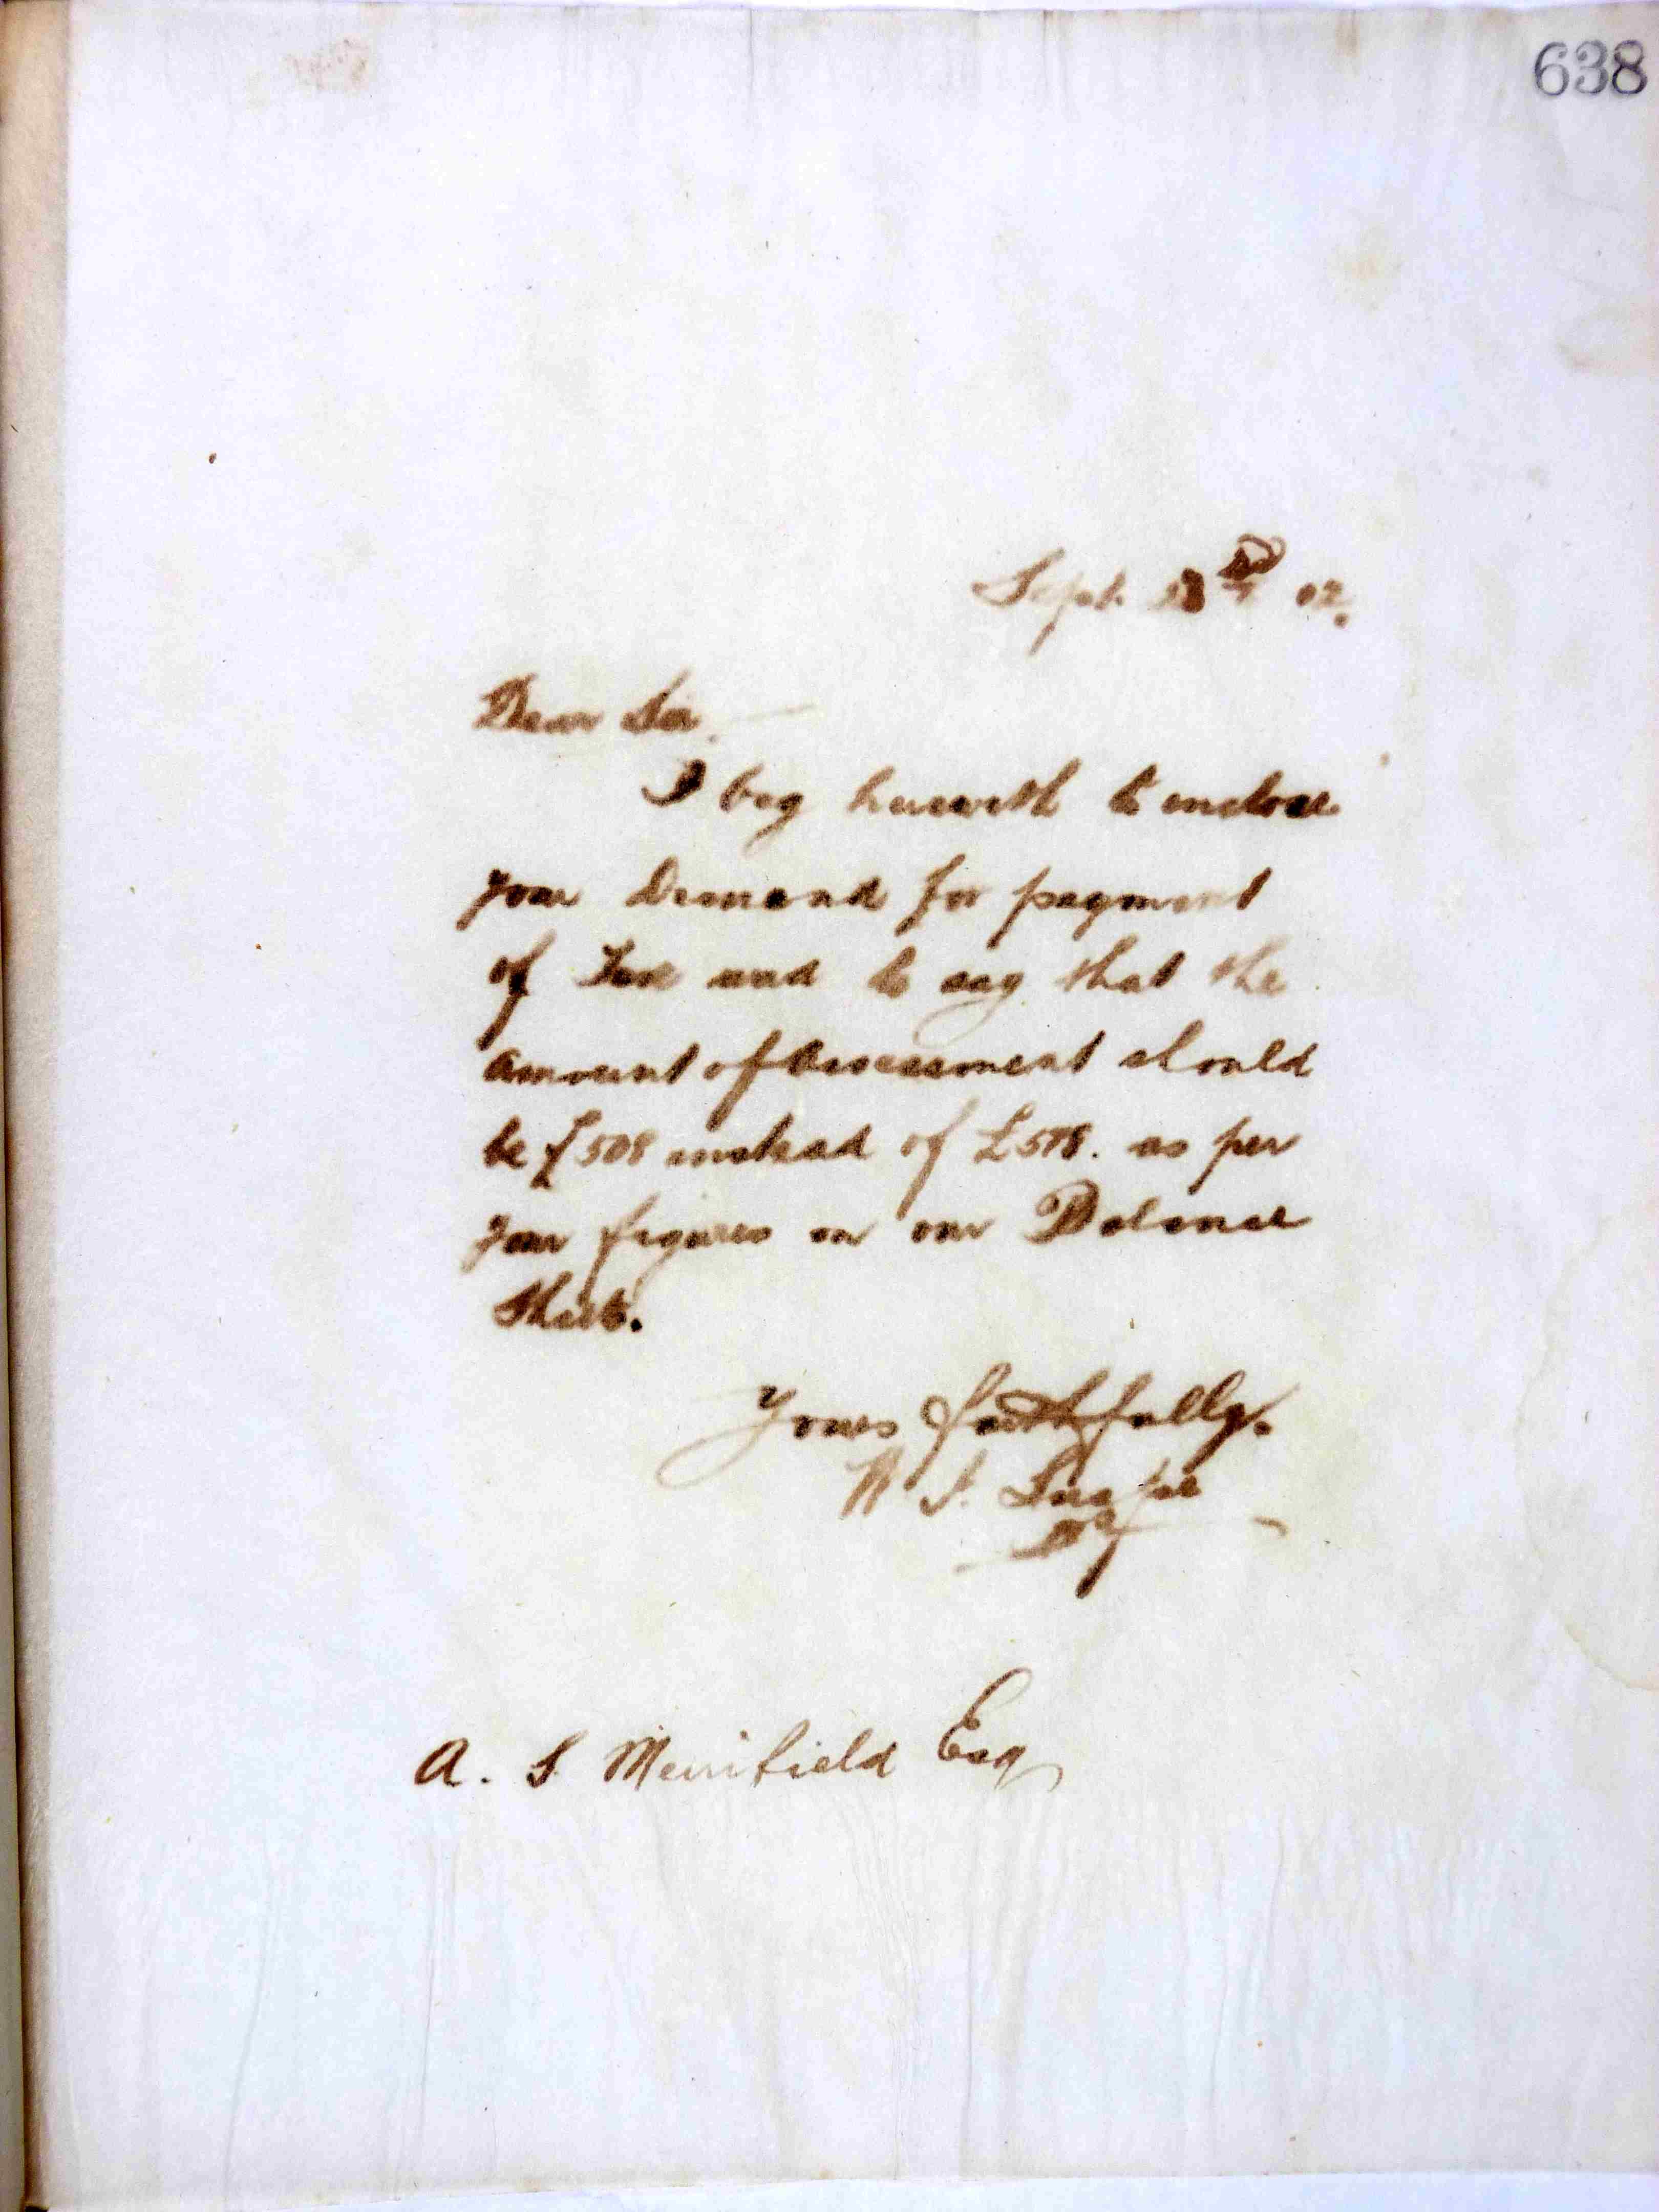 638
Sept. 02.
Dear Sir.
I beg herewith to enclose
your Demand for payment
of Tax and to say that the
amount of Assessment should
be £508 instead of £578. as per
your figures on our Balance
Sheets.
Yours faithfully.
W. S.
A. S. Merrifield Esq